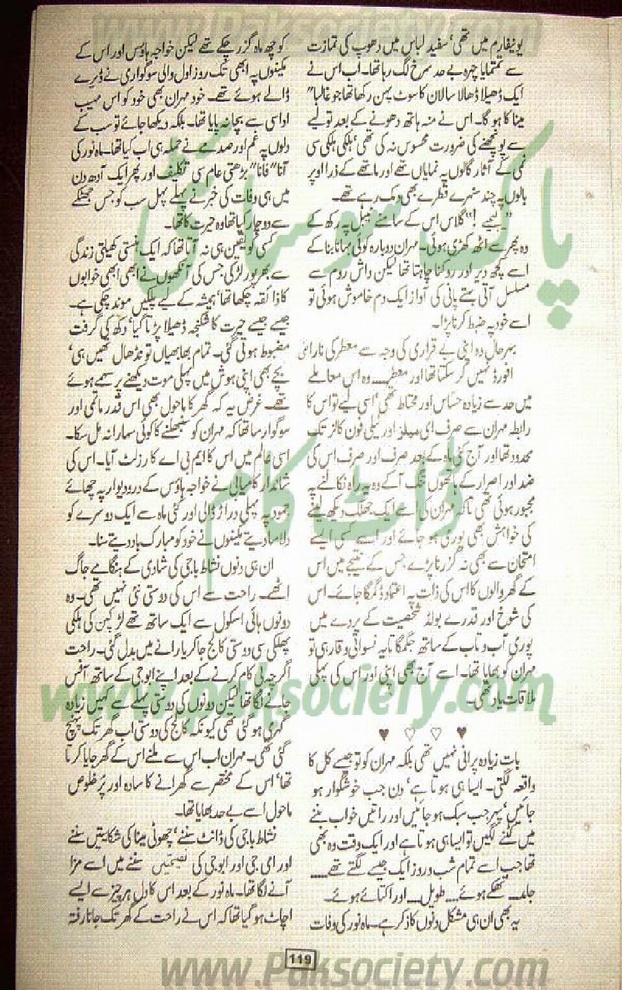 www.Paksociety.com
یونیفارم میں تھی‘ سفید لباس میں دھوپ کی تمازت
سے تمتمایا چہرہ بے حد سرخ لگ رہا تھا۔ اب اس نے
ایک ڈھیلا ڈھالا سالان کا سوٹ پہن رکھا تھا جو غالباً”
مینا کا ہوگا۔ اس نے منہ ہاتھ دھونے کے بعد تولیے
سے پونچھنے کی ضرورت محسوس نہ کی تھی‘ ہلکی ہلکی سی
نمی کے آثار گالوں پہ نمایاں تھے اور ماتھے کے ذرا اوپر
بالوں پہ چند سنہرے قطرے بھی دمک رہے تھے۔
”لیجیے!“ گلاس اس کے سامنے ٹیبل پہ رکھ کے
وہ پھر سے اٹھ کھڑی ہوئی۔ مہران دوبارہ کوئی بہانا بنا کے
اسے کچھ دیر اور روکنا چاہتا تھا لیکن واش روم سے
مسلسل آتی بہتے پانی کی آواز ایک دم خاموش ہوئی تو
اسے خود پہ ضبط کرنا پڑا۔
بہرحال وہ اپنی بے قراری کی وجہ سے معطر کی ناراضی
افورڈ نہیں کر سکتا تھا اور معطر۔۔۔۔ وہ اس معاملے
میں حد سے زیادہ حساس اور محتاط تھی‘ اسی لیے تو اس کا
رابطہ مہران سے صرف ای میلز اور ٹیلی فون کالز تک
محدود تھا اور آج کئی ماہ کے بعد صرف اور صرف اس کی
ضد اور اصرار کے ہاتھوں تنگ آ کے وہ یہ راہ نکالنے پہ
مجبور ہوئی تھی تاکہ مہران کی اسے ایک جھلک دیکھ لینے
کی خواہش بھی پوری ہو جائے اور اسے کسی ایسے
امتحان سے بھی نہ گزرنا پڑے جس کے نتیجے میں اس
کے گھر والوں کا اس کی ذات پہ اعتماد ڈگمگا جائے۔ اس
کی شوخ اور قدرے بولڈ شخصیت کے پردے میں
پوری آب و تاب کے ساتھ جگمگاتا یہ نسوانی وقار ہی تو
مہران کو بھایا تھا۔ اسے آج بھی اپنی اور اس کی پہلی
ملاقات یاد تھی۔
♥ ♡ ♡ ♥
بات زیادہ پرانی نہیں تھی بلکہ مہران کو تو جیسے کل کا
واقعہ لگتی۔ ایسا ہی ہوتا ہے‘ دن جب خوشگوار ہو
جائیں‘ پہر جب سبک ہو جائیں اور راتیں خواب بننے
میں کٹنے لگیں تو ایسا ہی ہوتا ہے اور ایک وقت وہ بھی
تھا جب اسے تمام شب و روز ایک جیسے لگتے تھے۔۔۔۔
جامد۔۔۔ تھکے ہوئے۔۔۔۔ طویل۔۔۔۔ اور اکتائے ہوئے۔
یہ بھی ان ہی مشکل دنوں کا ذکر ہے۔ ماہ نور کی وفات
کو چھ ماہ گزر چکے تھے لیکن خواجہ ہاؤس اور اس کے
مکینوں پہ ابھی تک روز اول والی سوگواری نے ڈیرے
ڈالے ہوئے تھے۔ خود مہران بھی خود کو اس مہیب
اداسی سے بچا نہ پایا تھا۔ بلکہ دیکھا جائے تو سب کے
دلوں پہ غم اور صدمے نے حملہ ہی اب کیا تھا۔ ماہ نور کی
آنا” فانا” بڑھتی عام سی تکلیف اور پھر ایک آدھ دن
میں ہی وفات کی خبر نے پہلے پہل سب کو جس جھٹکے
سے دوچار کیا تھا وہ حیرت کا تھا۔
کسی کو یقین ہی نہ آتا تھا کہ ایک ہنستی کھیلتی زندگی
سے بھرپور لڑکی جس کی آنکھوں نے ابھی ابھی خوابوں
کا ذائقہ چکھا تھا‘ ہمیشہ کے لیے پلکیں موند چکی ہے۔
جیسے جیسے حیرت کا شکنجہ ڈھیلا پڑتا گیا‘ دکھ کی گرفت
مضبوط ہوتی گئی۔ تمام بھابھیاں تو نڈھال تھیں ہی‘
بچے بھی اپنی ہوش میں پہلی موت دیکھنے پر سہمے ہوئے
تھے۔ غرض یہ کہ گھر کا ماحول بھی اس قدر ماتمی اور
سوگوار سا تھا کہ مہران کو سنبھلنے کا کوئی سہارا نہ مل سکا۔
اسی عالم میں اس کا ایم بی اے کا رزلٹ آیا۔ اس کی
شاندار کامیابی نے خواجہ ہاؤس کے در و دیوار پہ چھائے
جمود پہ پہلی دراڑ ڈالی اور کئی ماہ سے ایک دوسرے کو
دلاسا دیتے مکینوں نے خود کو مبارک باد دیتے سنا۔
ان ہی دنوں نشاط باجی کی شادی کے ہنگامے جاگ
اٹھے۔ راحت سے اس کی دوستی نئی نہیں تھی۔ وہ
دونوں ہائی اسکول سے ایک ساتھ تھے لڑکپن کی ہلکی
پھلکی سی دوستی کالج جا کر یارانے میں بدل گئی۔ راحت
اگرچہ بی کام کرنے کے بعد اپنے ابوجی کے ساتھ آفس
جانے لگا تھا لیکن دونوں کی دوستی پہلے سے کہیں زیادہ
گہری ہو گئی تھی کیونکہ کالج کی دوستی اب گھر تک پہنچ
گئی تھی۔ مہران اب اس سے ملنے اس کے گھر جایا کرتا
تھا‘ اس کے مختصر سے گھرانے کا سادہ اور پرخلوص
ماحول اسے بے حد بھایا تھا۔
نشاط باجی کی ڈانٹ سننے‘ چھوٹی مینا کی شکایتیں سننے
اور امی جی اور ابوجی کی نصیحتیں سننے میں اسے مزا
آنے لگا تھا۔ ماہ نور کے بعد اس کا دل ہر چیز سے ایسے
اچاٹ ہو گیا تھا کہ اس نے راحت کے گھر تک جانا رفتہ
پاک سوسائٹی
ڈاٹ کام
www.paksociety.com
119
www.Paksociety.com